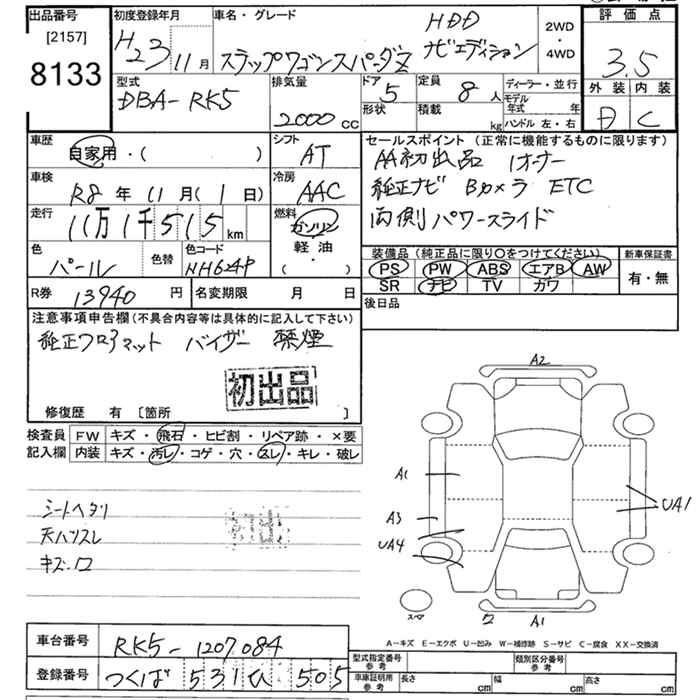 出品番号 初度登録年月 車名・グレード 評価点
[2157]
8133
H23 11月
HDD
ステップワゴンスパーダZ ナビエディション
2WD・4WD
3.5
外装 内装
C
型式 排気量 ドア 定員 ディーラー・並行
DBA-RK5 2000cc 5 8人
形状 積載 kg
モデル年式 年
ハンドル 左・右
車歴 シフト セールスポイント (正常に機能するものに限ります)
自家用・( ) AT
AA初出品 1オーナー
車検 冷房
R8年 11月(1日) AAC
純正ナビ Bカメラ ETC
走行 燃料
11万1千515km ガソリン
軽油・( )
両側パワースライド
色 色替 色コード
パール NH624P
装備品 (純正品に限り○をつけてください) 新車保証書
PS PW ABS エアB AW
SR ナビ TV カワ
有・無
R券 13940円 名変期限 月 日
後日品
注意事項申告欄(不具合内容等は具体的に記入して下さい)
純正フロアマット バイザー 禁煙
初出品
修復歴 有 [箇所 ]
検査員 FW キズ・飛石・ヒビ割・リペア跡・×要
記入欄 内装 キズ・汚レ・コゲ・穴・スレ・キレ・破レ
シートヘタリ
天ハリスレ
キズ・ロ
初出
A2
A1
UA1
A3
UA4
ワ A1
スペア
A-キズ E-エクボ U-凹み W-補修跡 S-サビ C-腐食 XX-交換済
車台番号 RK5-1207084
登録番号 つくば 531 ひ 505
型式指定番号 参考 類別区分番号 参考
車庫証明用 参考 長さ cm 幅 cm 高さ cm